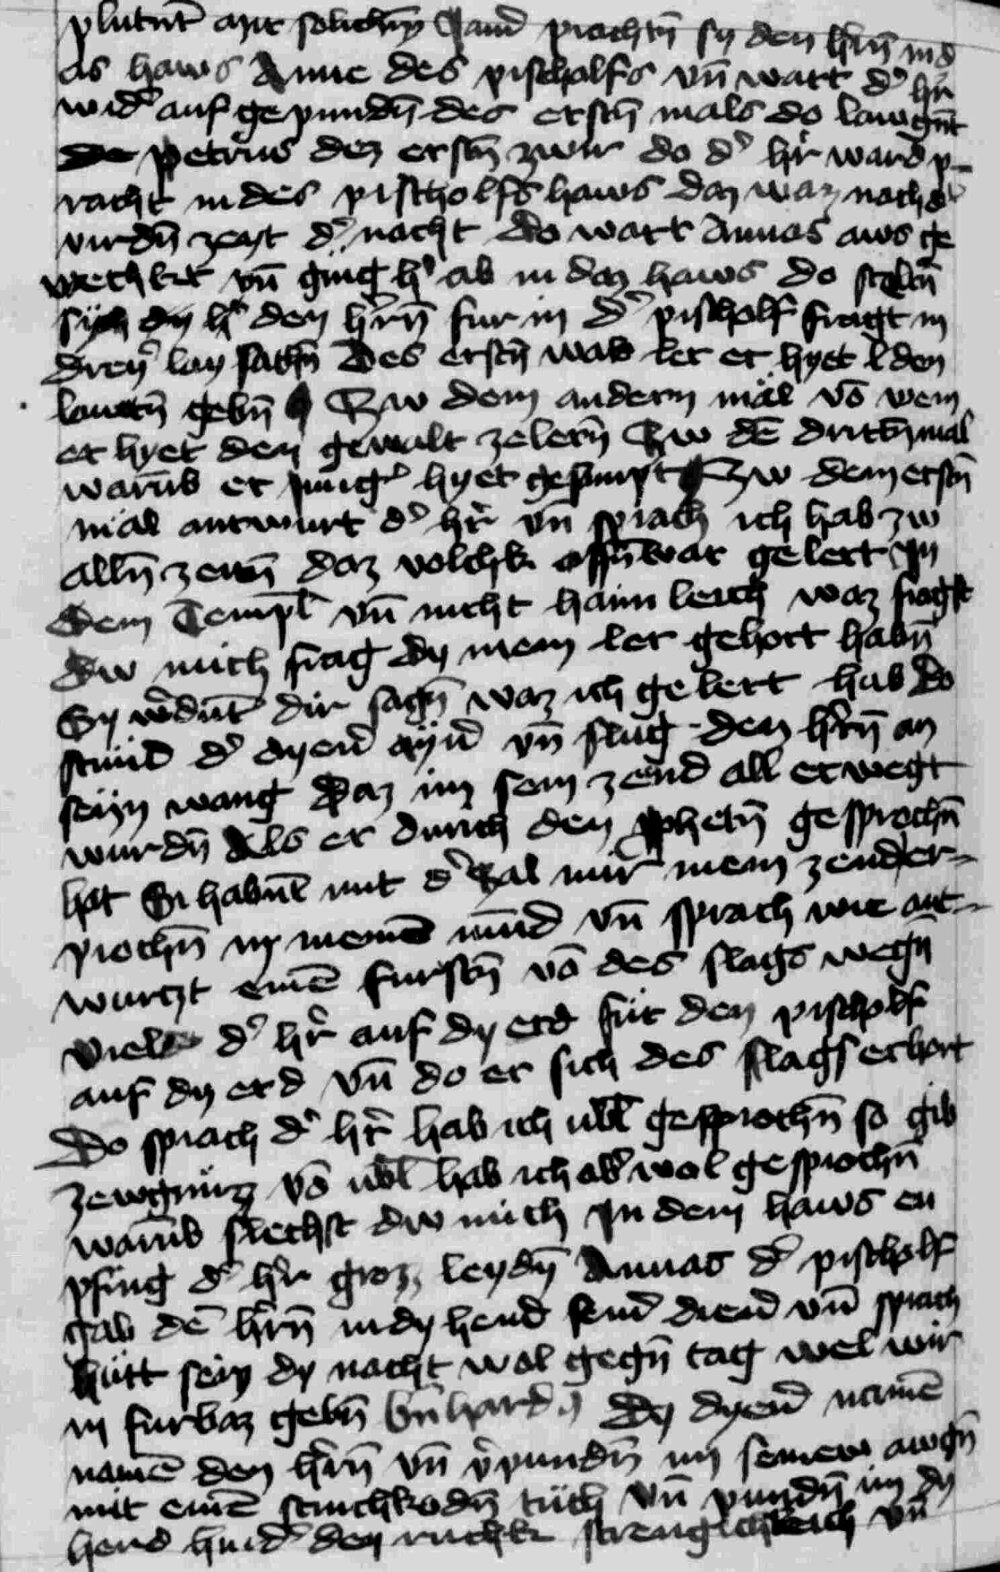 plutūt mit solichen pand prachtn̄ sy den hr̄n̄ in d
as haws Anne des pischolfs vn̄ wart dˀ hr̄
widˀ auf gepundn̄ des erstn̄ mals do lawgnt
petrus den erstn̄ zwir do dˀ hr̄ ward p-
racht in des pischolfs haws daz waz nach dˀ
virdn̄ zeyt dˀ nacht do wart Annas aws ge
wechket vn̄ ging hˀ ab in daz haws do steltn̄
sych dy den hr̄n̄ fur in dˀ pischolf fragt in
dreyˀ lay sachn̄ Des erstn̄ waz ler er hyet den
lewtn̄ gebn̄ Czw dem andern mal vō wem
er hyet den gewalt zelern̄ Czw dē drittn̄ mal
warūb er jungˀ hyet gesampt Czw dem erstn̄
mal antwurt dˀ hr̄ vn̄ sprach ich hab zw
alln̄ zeitn̄ daz volchk offn̄war gelert In
dem Templ vn̄ nicht haimleich waz fragst
dw mich frag dy mein ler gehort habn̄
Sy wˀdnt dir sagn̄ waz ich gelert hab Do
stund dˀ dyenˀ aynˀ vn̄ slug den hr̄n̄ an
seyn wang daz im sein zend all erwegt
wurdn̄ Als er durch den ꝓphetn̄ gesprochn̄
hat Si habnt mit dˀ zal mir mein zend er-
prochn̄ in meinē mūd vn̄ sprach wie ant-
wurtzt einē furstn̄ vō des slags wegn̄
viel dˀ hr̄ auf dy erd fur den pischolf
auf dy erd vn̄ do er sich des slags erhort
Do sprach dˀ hr̄ hab ich ubl gesprochn̄ so gib
zewgnuz vō ubl hab ich abˀ wol gesprochn̄
warūb slechst dw mich In dem haws en
pfing dˀ hr̄ groz leydn̄ Annas dˀ pischolf
gab dē hr̄n̄ in dy hend seinˀ dienˀ vn̄ sprach
hutt sein dy nacht wol gegn̄ tag wel wir
in furbaz gebn̄ Bn̄hardˀ Dy dyenˀ namē
namē den hr̄n̄ vn̄ vˀpundn̄ im seinew awgn̄
mit einē tuch vn̄ pundn̄ im dy
hend hindˀ den ruchk strengichleich vn̄